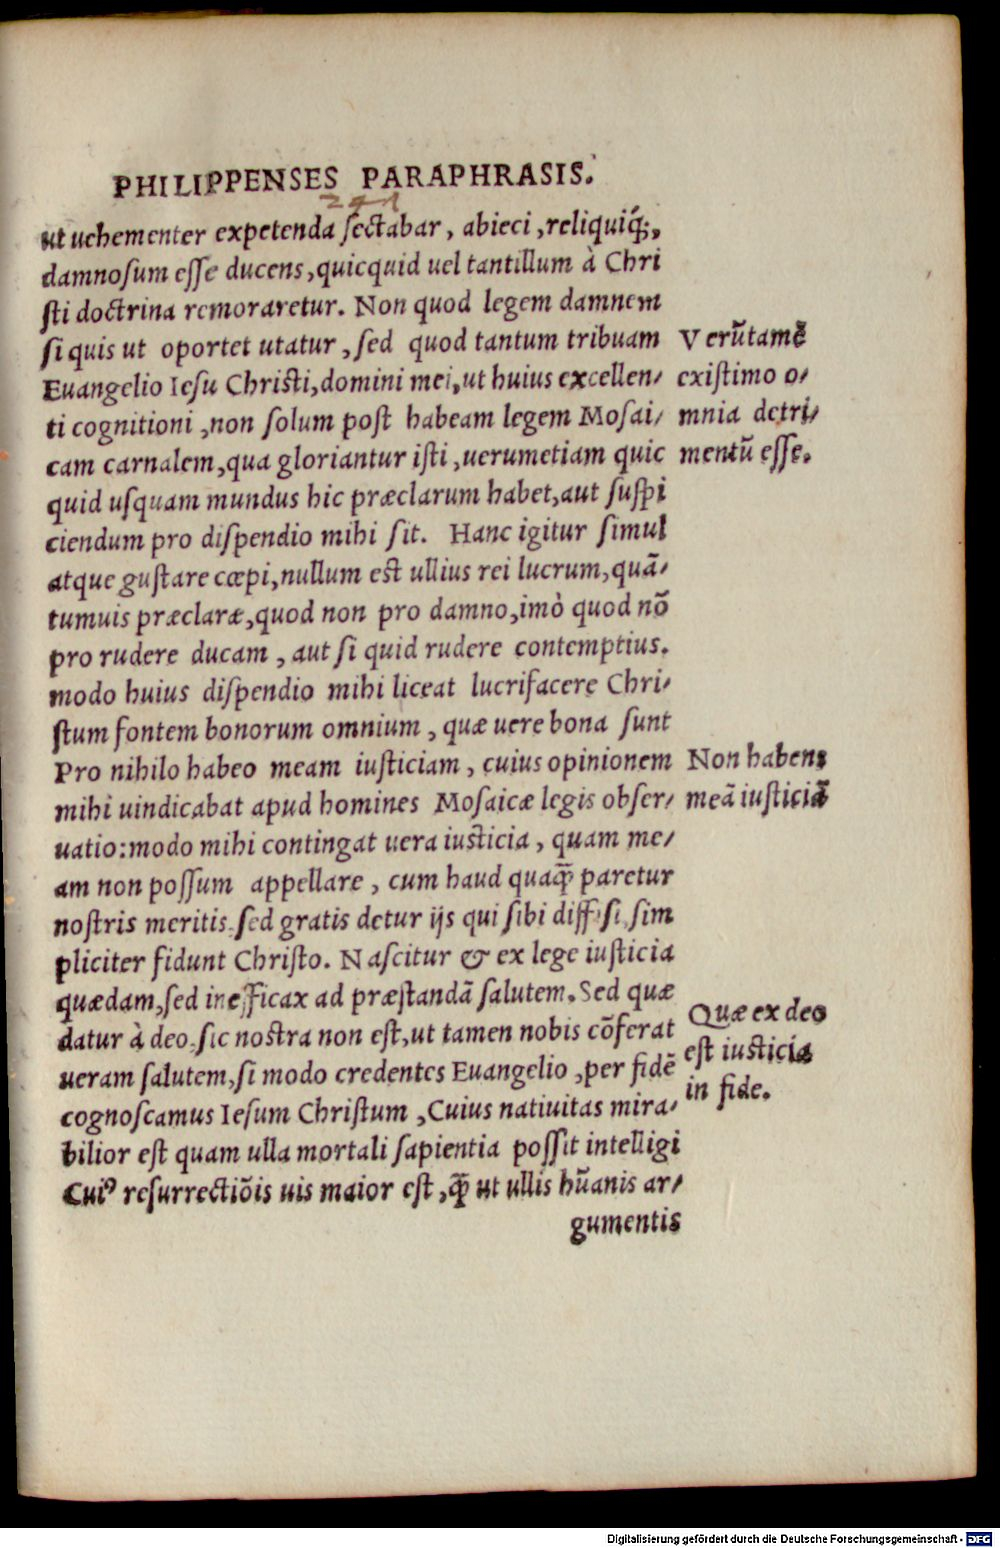 PHILIPPENSES PARAPHRASIS.
241
ut uehementer expetenda ſectabar, abieci, reliquiq́;,
damnoſum eſſe ducens, quicquid uel tantillum à Chri
ſti doctrina remoraretur. Non quod legem damnem
ſi quis ut oportet utatur, ſed quod tantum tribuam
Euangelio Ieſu Chriſti, domini mei, ut huius excellen/
ti cognitioni, non ſolum poſt habeam legem Moſai/
cam carnalem, qua gloriantur iſti, uerumetiam quic
quid uſquam mundus hic præclarum habet, aut ſuſpi
ciendum pro diſpendio mihi ſit. Hanc igitur ſimul
atque guſtare cœpi, nullum eſt ullius rei lucrum, quã/
tumuis præclaræ, quod non pro damno, imò quod nõ
pro rudere ducam, aut ſi quid rudere contemptius.
modo huius diſpendio mihi liceat lucrifacere Chri/
ſtum fontem bonorum omnium, quæ uere bona ſunt
Pro nihilo habeo meam iuſticiam, cuius opinionem
mihi uindicabat apud homines Moſaicæ legis obſer/
uatio: modo mihi contingat uera iuſticia, quam me/
am non poſſum appellare, cum haud quaq̃ paretur
noſtris meritis. ſed gratis detur ijs qui ſibi diffiſi, ſim
pliciter fidunt Chriſto. Naſcitur & ex lege iuſticia
quædam, ſed inefficax ad præſtandã ſalutem. Sed quæ
datur à deo. ſic noſtra non eſt, ut tamen nobis cõferat
ueram ſalutem, ſi modo credentes Euangelio, per fidẽ
cognoſcamus Ieſum Chriſtum, Cuius natiuitas mira/
bilior eſt quam ulla mortali ſapientia poſſit intelligi
Cuiꝰ reſurrectiõis uis maior eſt, q̃ ut ullis hũanis ar/
gumentis
Verũtamẽ
exiſtimo o/
mnia detri/
mentũ eſſe.
Non habens
meã iuſticiã
Quæ ex deo
eſt iuſticia
in fide.
Digitalisierung gefördert durch die Deutsche Forschungsgemeinschaft - DFG